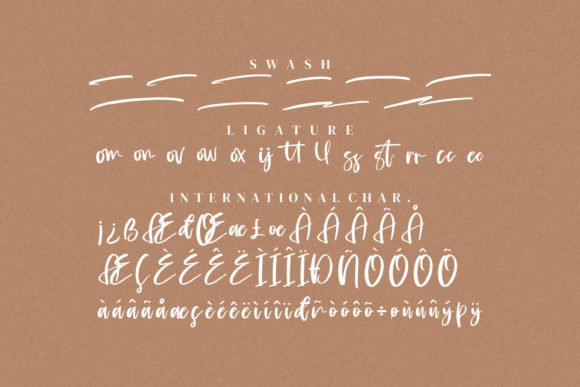 SWASH
LIGATURE
om on ov ow ox ij tt ll ss st rr cc ee
INTERNATIONAL CHAR.
¡¿ßÆđŒæ£œÀÁÂÃÅ
ÆÇÈÉÊËÌÍÎÏÐÑÒÓÔÕ
àáâãåæçèéêëìíîïđñòóôõ÷øùúûýþÿ